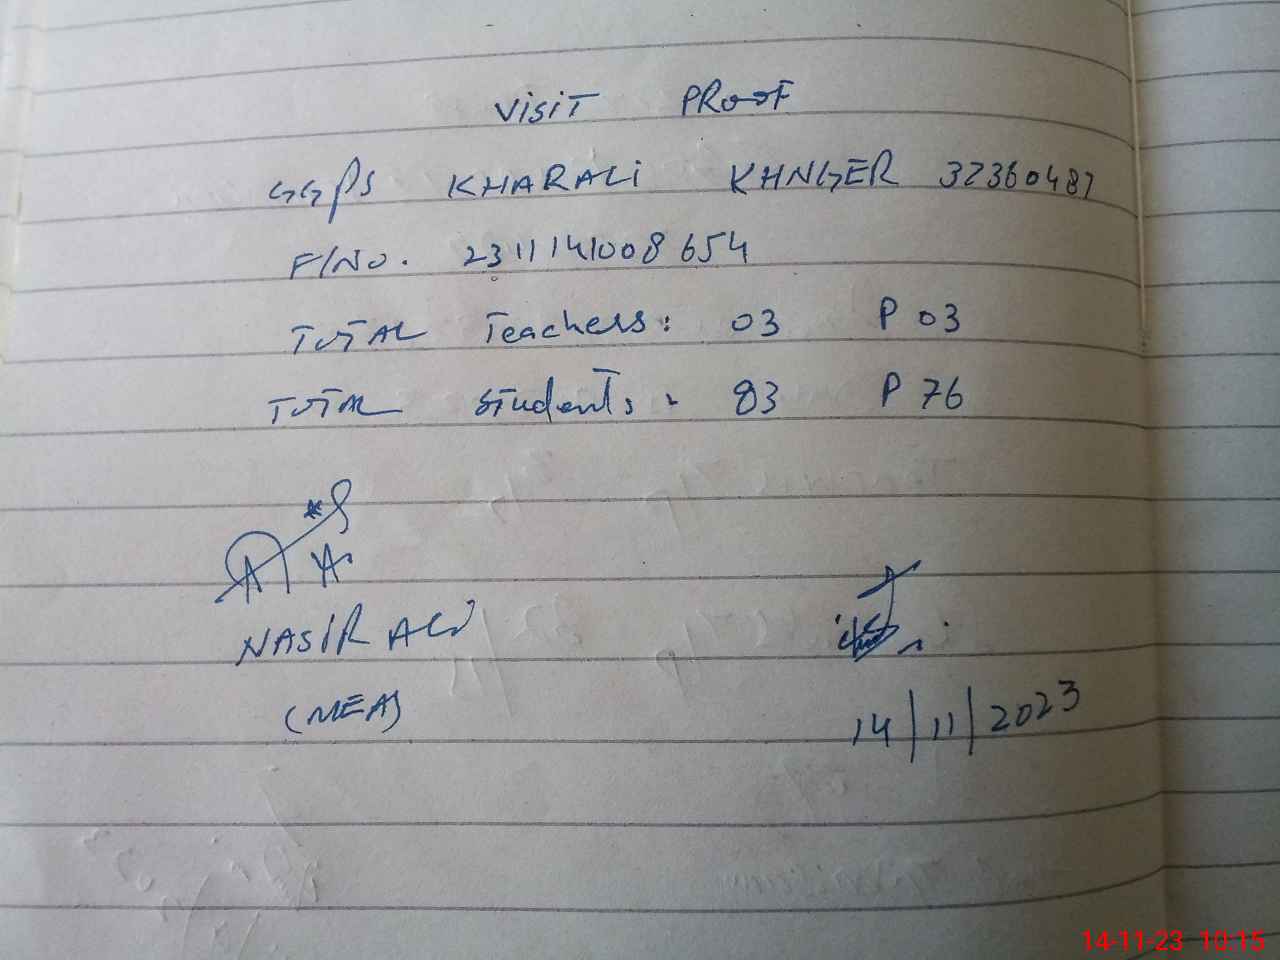 VISIT PROOF
GGPS KHARALI KHNGER 32360487
F/NO. 2311141008654
TOTAL Teachers: 03 P 03
TOTAL Students: 83 P 76
NASIR ALI
(MEA)
14/11/2023
14-11-23 10:15